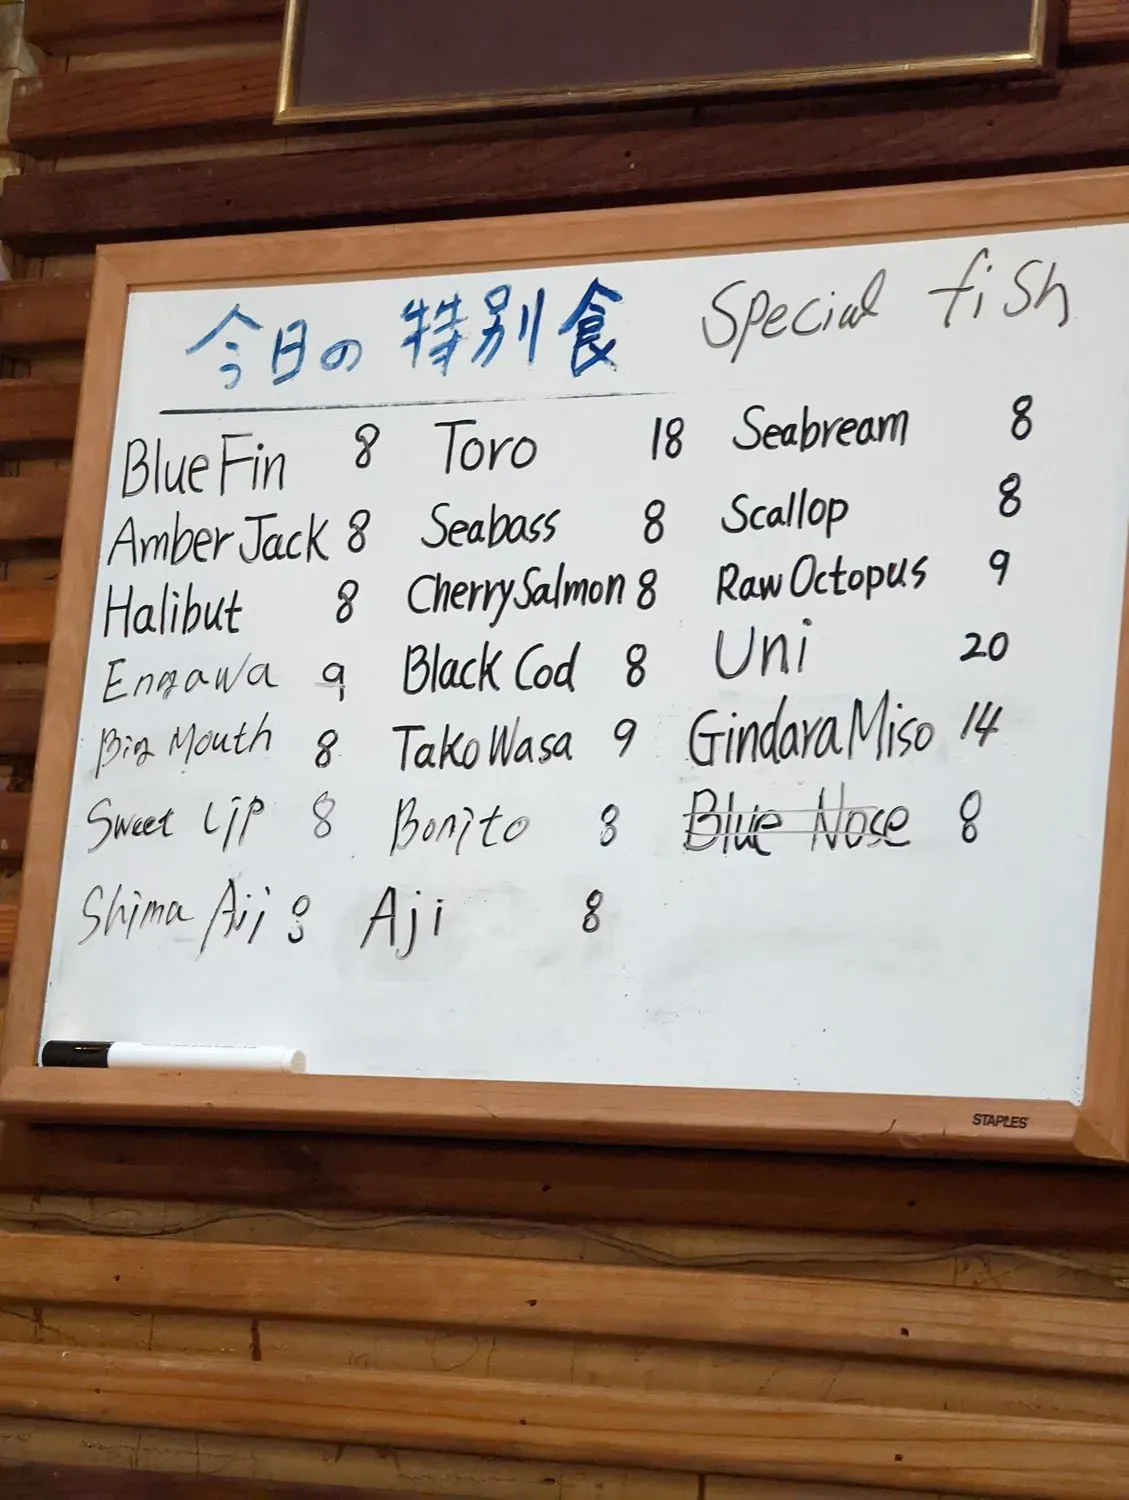 今日の特別食 Special fish
BlueFin 8 Toro 18 Seabream 8
Amber Jack 8 Seabass 8 Scallop 8
Halibut 8 Cherry Salmon 8 Raw Octopus 9
Engawa 9 Black Cod 8 Uni 20
Big Mouth 8 Tako Wasa 9 Gindara Miso 14
Sweet Lip 8 Bonito 8 Blue Nose 8
Shima Aji 8 Aji 8
STAPLES